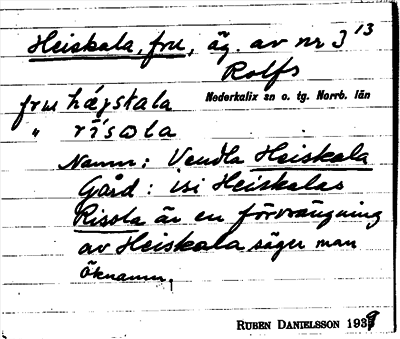 Heiskala, fru, äg. av nr 3¹³
Rolfs
Nederkalix sn o. tg. Norrb. län
fru hæjskala
" rísola
Namn: Vendla Heiskala
Gård: isi Heiskalas
Rissla är en förvrängning
av Heiskala säger man
Öknamn.
RUBEN DANIELSSON 1939